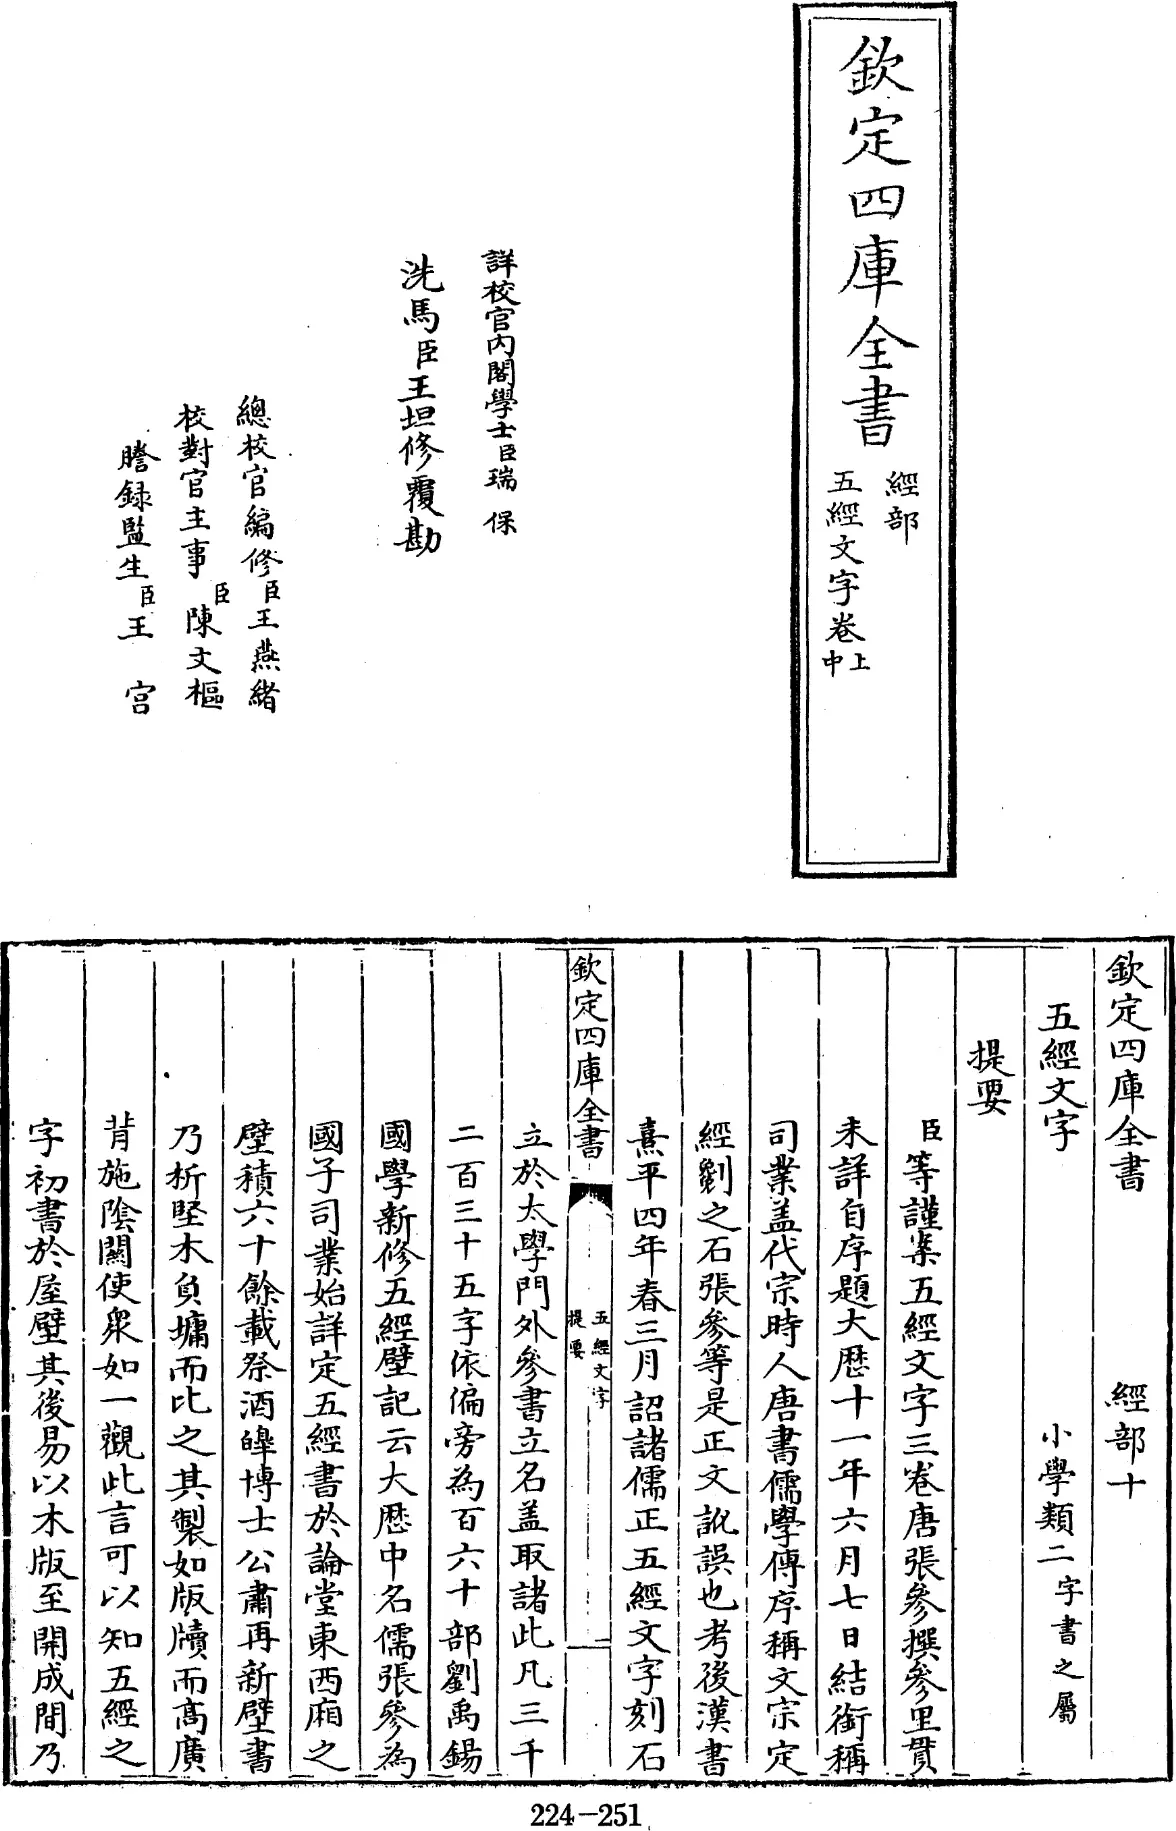 欽定四庫全書
經部
五經文字卷上中
詳校官內閣學士臣瑞保
洗馬臣王坦修覆勘
總校官編修臣王燕緒
校對官主事臣陳文樞
謄録監生臣王宫
欽定四庫全書 經部十
五經文字 小學類二字書之屬
提要
臣等謹案五經文字三卷唐張參撰參里貫
未詳自序題大歴十一年六月七日結銜稱
司業盖代宗時人唐書儒學傳序稱文宗定
經劖之石張參等是正文訛誤也考後漢書
熹平四年春三月詔諸儒正五經文字刻石
欽定四庫全書
五經文字
提要
一
立於太學門外參書立名盖取諸此凡三千
二百三十五字依偏旁為百六十部劉禹錫
國學新修五經壁記云大歴中名儒張參為
國子司業始詳定五經書於論堂東西廂之
壁積六十餘載祭酒皥博士公肅再新壁書
乃析堅木負墉而比之其製如版牘而髙廣
背施陰闗使衆如一觀此言可以知五經之
字初書於屋壁其後易以木版至開成間乃
224-251